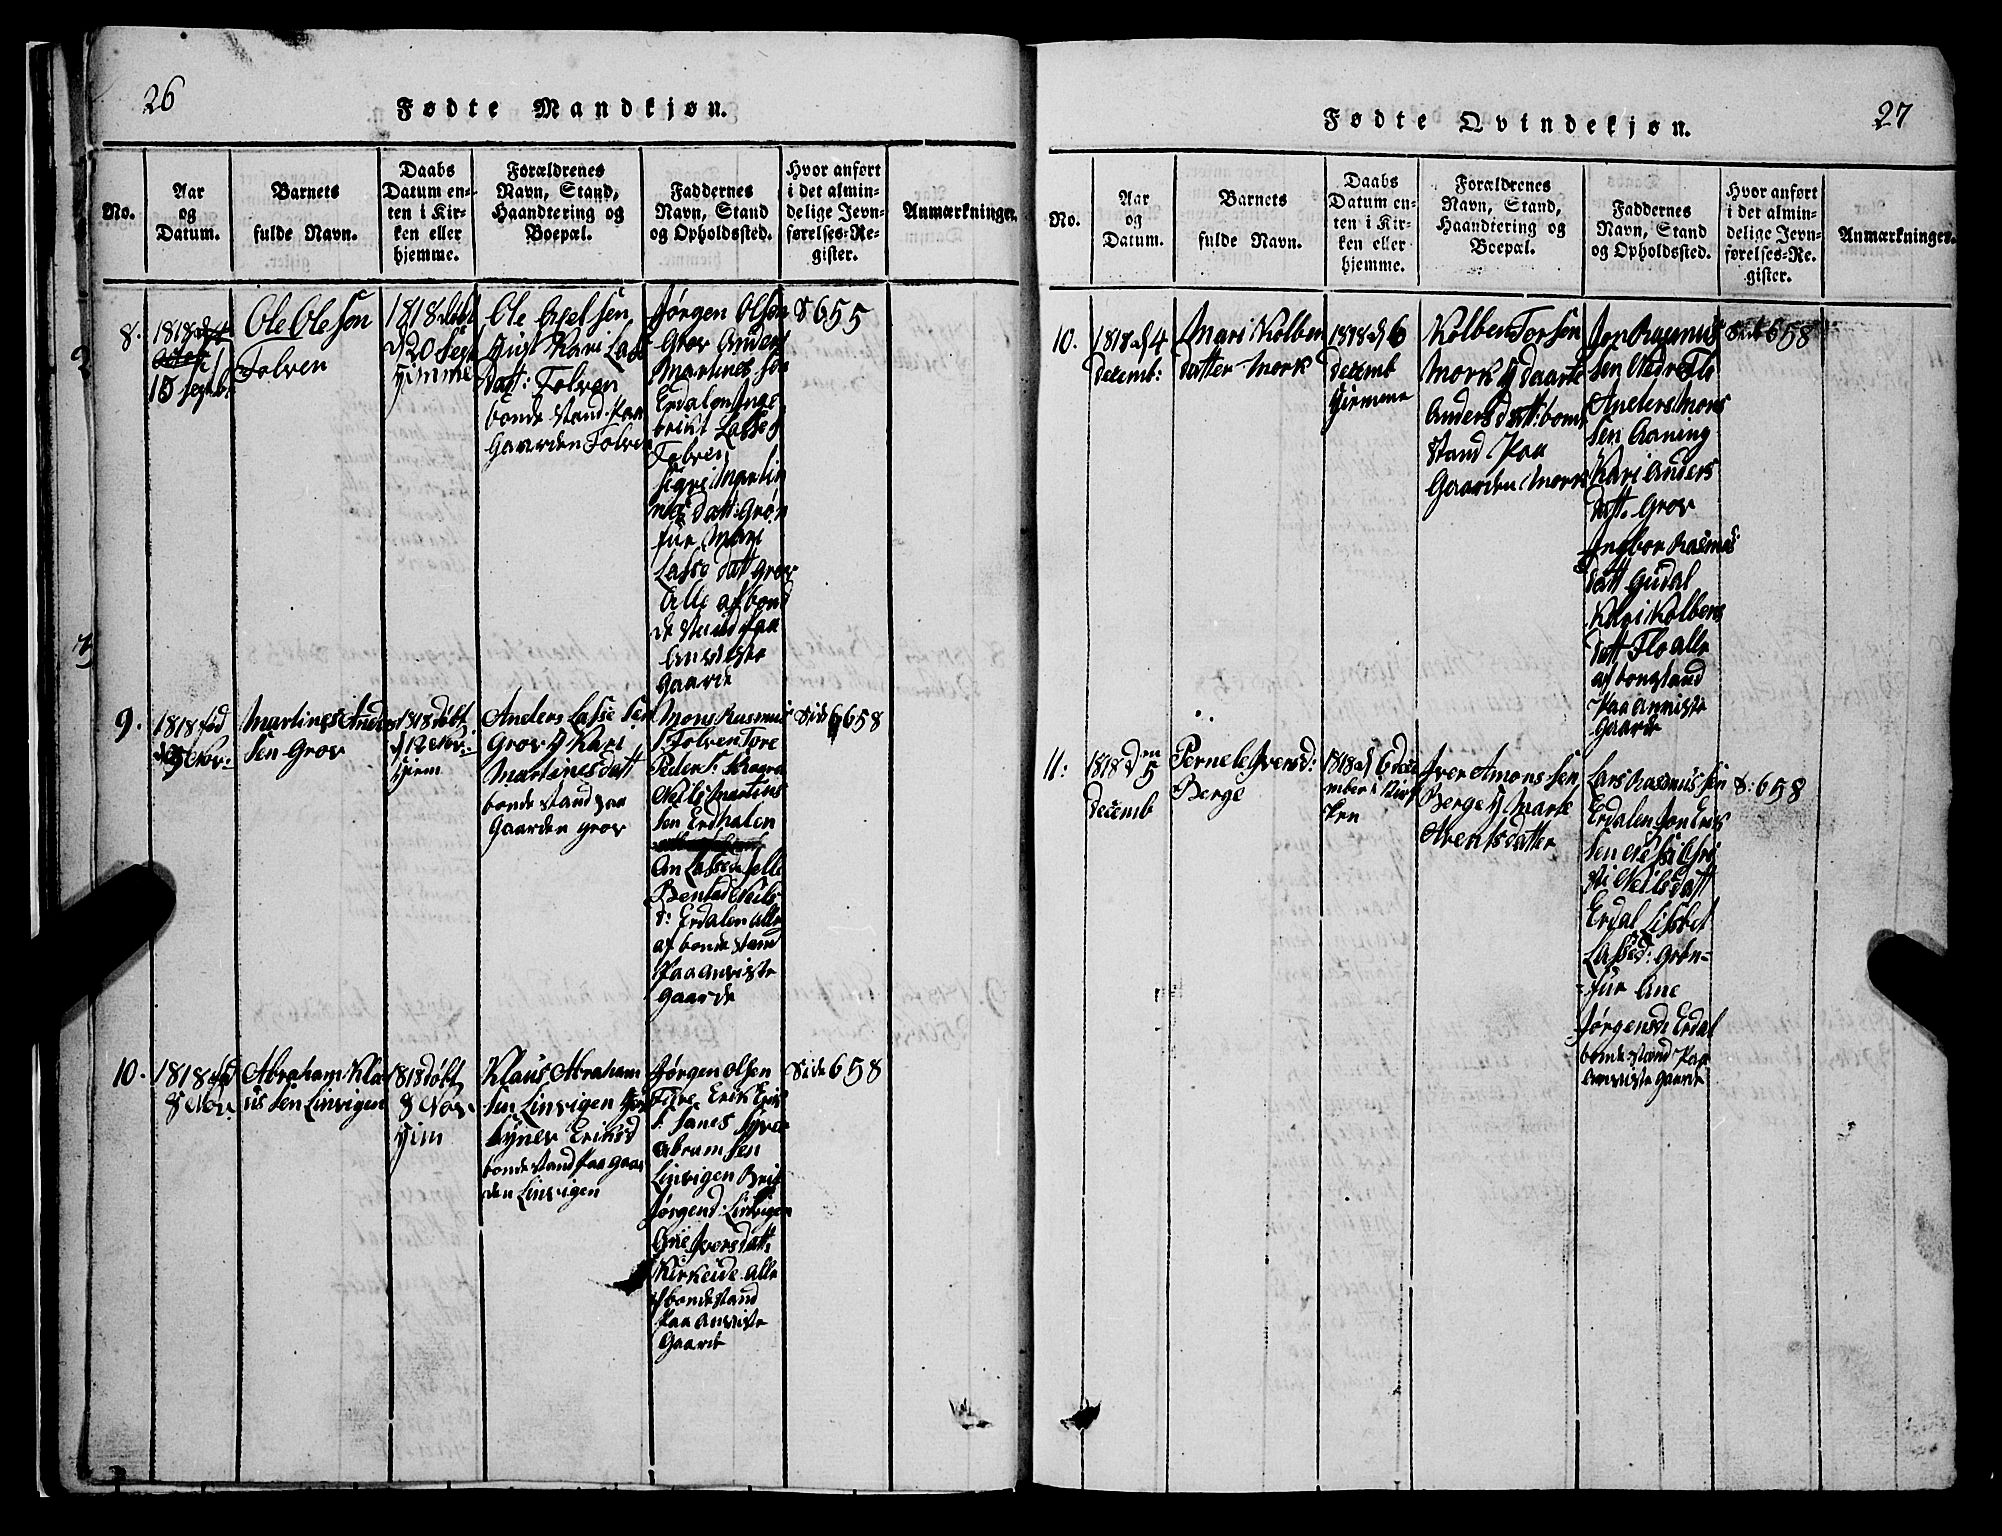 26
Fødte Mandkjøn.
No.
Aar
og
Datum.
Barnets
fulde Navn.
Daabs
Datum en-
ten i Kir-
ken eller
hjemme.
Forældrenes
Navn, Stand,
Haandtering og
Boepæl.
Faddernes
Navn, Stand
og Opholdssted.
Hvor anført
i det almin-
delige Jevn-
førelses-Re-
gister.
Anmærkninger.
8.
1818
15 Septb:
Ole Olesøn
Folven
1818 døbt
d 20 Sept
Hjimme
Ole Axelsen
Hust Kari Lasse
datt: Folven
bonde stand Paa
Gaarden Folven
Jørgen Olsen
Grov Anders
Martines søn
Erdalen Inge
brikt Lasse s
Folven
Sigri Martin
nes datt: Grøn
fur Mari
Lasse datt grov
Alle af bond
de stand paa
Anviste
Gaarde
S 655
9.
1818 fød
d 9 Nov:
Martines Anders
sen Grov
1818 døbt
d 12 Nov:
Hjem
Anders Lasse sen
Grov H Kari
Martines datt
bonde stand paa
Gaarden grov
Mons Rasmus
s Folven Tore
Peder s:
Neils Martins
sen Erdhalen
An Lasse d
Bented Neils
d: Erdalen alle
af bonde stand
Paa anviste
gaarde
Side 658
10.
1818 fød
8 Nov:
Abraham Kla
us sen Linvigen
1818 døbt
8 Nov
Hjim
Klaus Abraham
sen Linvigen
Synev Eriksd
bonde stand paa gaar
den Linvigen
Jørgen Olsen
Erik Erik
s:
Abram sen
Linvigen Brit
Jørgend: Linvigen
Ane Iversdatt:
Kirkeide alle
af bonde stand
Paa anviste
Gaarde
Side 658
27
Fødte Qvindekjøn.
No.
Aar
og
Datum.
Barnets
fulde Navn.
Daabs
Datum en-
ten i Kir-
ken eller
hjemme.
Forældrenes
Navn, Stand,
Haandtering og
Boepæl.
Faddernes
Navn, Stand
og Opholdssted.
Hvor anført
i det almin-
delige Jevn-
førelses-Re-
gister.
Anmærkninger.
10.
1818 d 4
decemb:
Mari Kolben
datter Mork
1818 d 6
decemb
Hiemme
Kolben Torsen
Mork H Maarte
Anders datt: bonde
stand Paa
Gaarden Mork
Jon Rasmus
sen Vedre Flo
Anders Mons
sen Aaning
Kari Anders
datt. Grov
Ingbor Rasmus
datt Gudal
Kari Kolbens
datt Flo alle
af bonstand
Paa Anviste
Gaarde
Side 658
11:
1818 d 5
decemb
Pernele Iversd:
Berge
1818 d 6 dec
ember i Kir
ken
Iver Amonssen
Berge H Marte
Arentsdatter
Lars Rasmussen
Erdalen Jon Eriks
sen
Neilsdatt
Erdal Lisbet
Lassed: Grøn-
fur Ane
Jørgensd: Erdal
bonde stand Paa
Anviste gaarde
S: 658